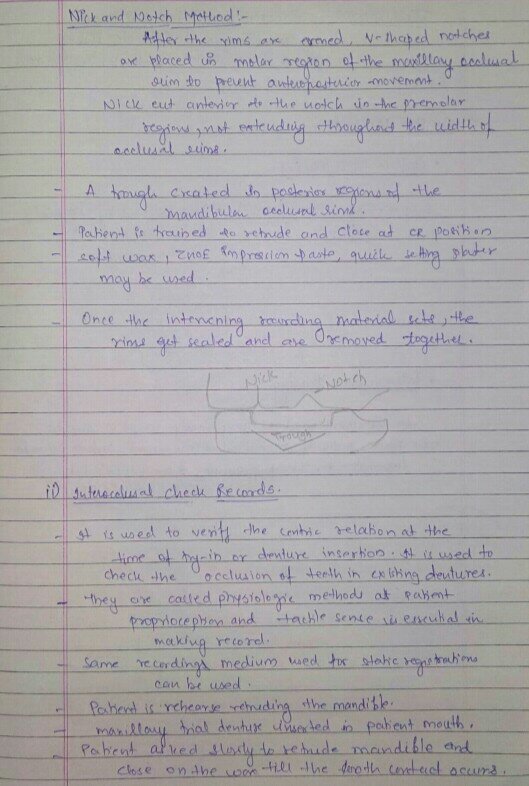 Nick and Notch Method:-
After the rims are evened, V-shaped notches
are placed in molar region of the maxillary occlusal
rim to prevent anteroposterior movement.
Nick cut anterior to the notch in the premolar
regions, not extending throughout the width of
occlusal rims.
- A trough created in posterior regions of the
mandibular occlusal rims.
- Patient is trained to retrude and close at CR position
- soft wax, ZnOE impression paste, quick setting plaster
may be used.
- Once the intervening recording material sets, the
rims get sealed and are removed together.
Nick
Notch
Trough
ii) Interocclusal check Records.
- It is used to verify the centric relation at the
time of try-in or denture insertion. It is used to
check the occlusion of teeth in existing dentures.
- They are called physiologic methods as patient
proprioception and tactile sense is essential in
making record.
- Same recordings medium used for static registrations
can be used.
- Patient is rehearse retruding the mandible.
- maxillary trial denture inserted in patient mouth.
- Patient asked slowly to retrude mandible and
close on the wax till the tooth contact occurs.